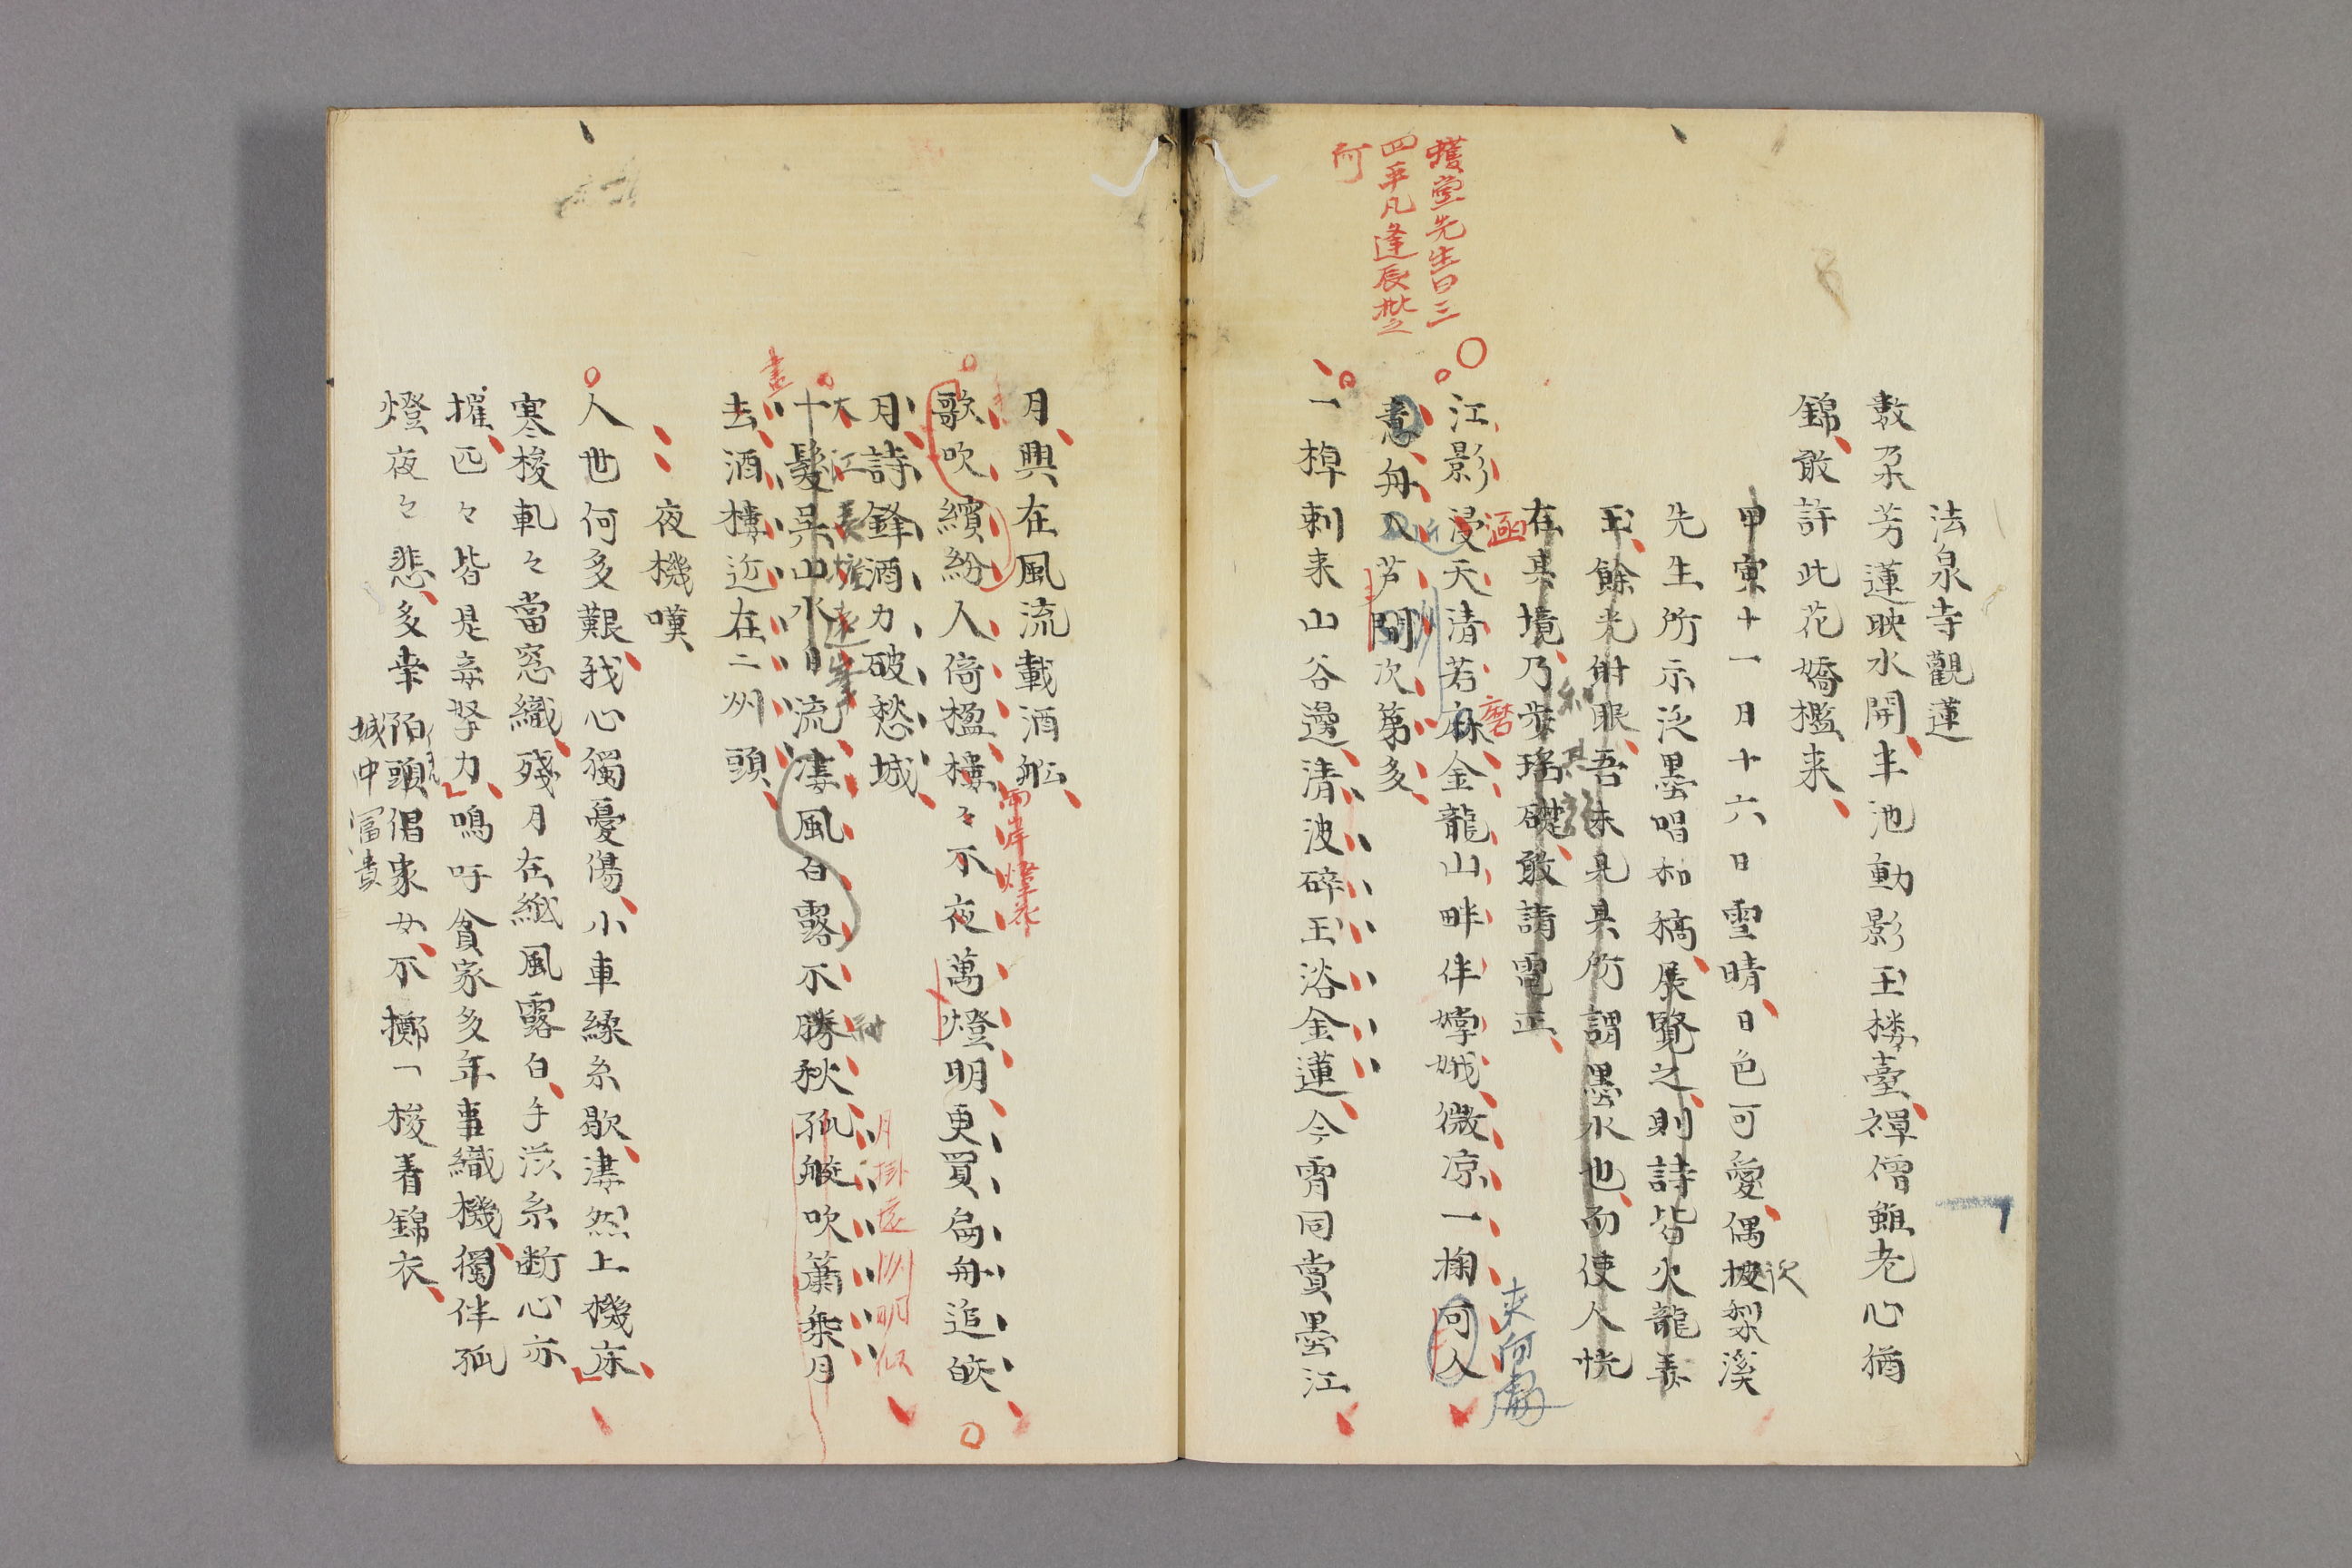 法泉寺觀蓮
數朶芳蓮映水開半池動影玉楼臺禪僧雖老心猶
錦敢許此花嬌檻来
甲寅十一月十六日雪晴日色可愛偶披梨溪
先生所示泛墨唱和稿展覽之則詩皆火龍弄
玉餘光射眼吾未見其所謂墨水也而使人恍
在其境乃歩瑤礎敢請電正
護堂先生曰三
四平凡逢辰批之
可
江影浸天清若麻金龍山畔伴嫦娥微凉一掬同人
涵
磨
来何處
意舟入芦間次第多
近
一棹刺来山谷邊清波碎玉浴金蓮今宵同賞墨江
月興在風流載酒舩
歌吹繽紛人倚楹樓々不夜萬燈明更買扁舟追皎
两岸燈花
月詩鋒酒力破愁城
大江
十髮呉山水日流凄風白露不勝秋孤艇吹簫乘月
月掛
明似
畫
去酒樓近在二州頭
夜機嘆
人世何多艱我心獨憂傷小車繰糸歇凄然上機床
寒梭軋々當窓織殘月在纖風露白手澁糸断心亦
摧匹々皆是辛努力嗚呼貧家多年事織機獨伴孤
燈夜々悲多幸陌頭倡家女不擲一梭着錦衣
城中冨貴